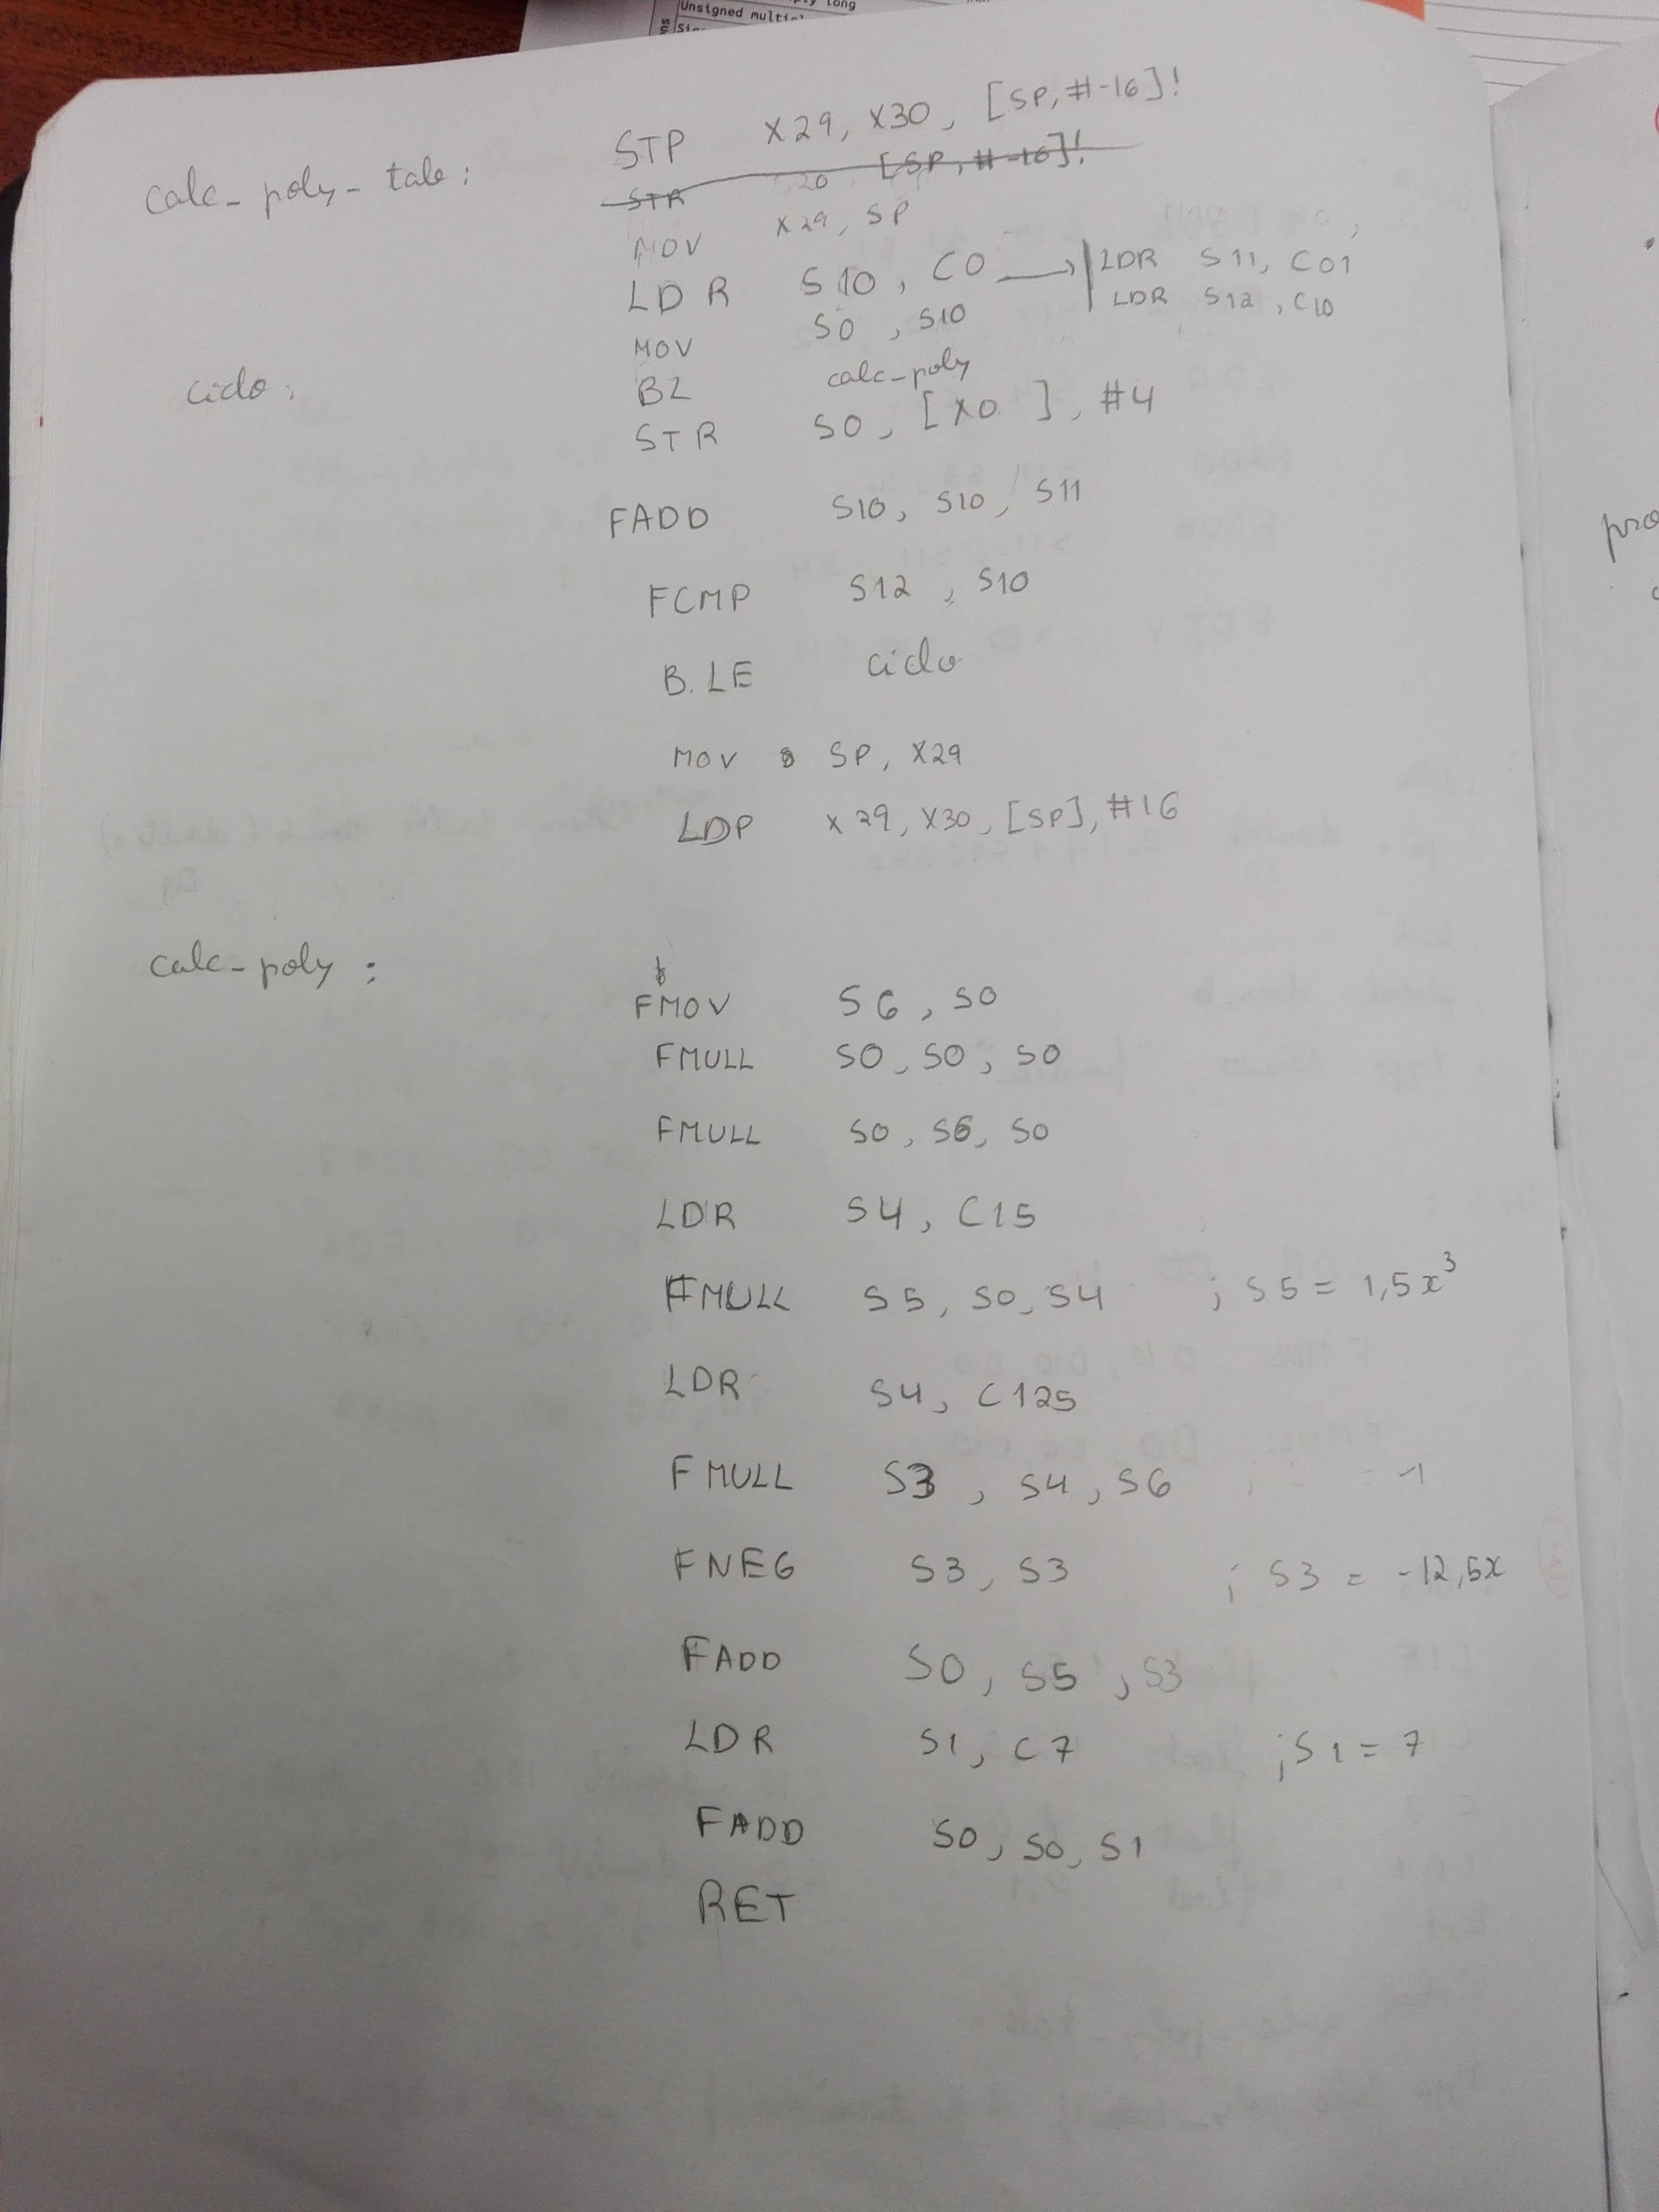 Unsigned
calc_poly_tab: STP X29, X30, [SP, #-16]!
STR [SP, #-16]!
MOV X29, SP
LDR S10, C0 → LDR S11, C01
LDR S12, C10
MOV S0, S10
ciclo: BL calc_poly
STR S0, [X0], #4
FADD S10, S10, S11
FCMP S12, S10
B.LE ciclo
MOV SP, X29
LDP X29, X30, [SP], #16
calc_poly:
FMOV S6, S0
FMULL S0, S0, S0
FMULL S0, S6, S0
LDR S4, C15
FMULL S5, S0, S4 ; S5 = 1,5x³
LDR S4, C125
FMULL S3, S4, S6
FNEG S3, S3 ; S3 = -12,5x
FADD S0, S5, S3
LDR S1, C7 ; S1 = 7
FADD S0, S0, S1
RET